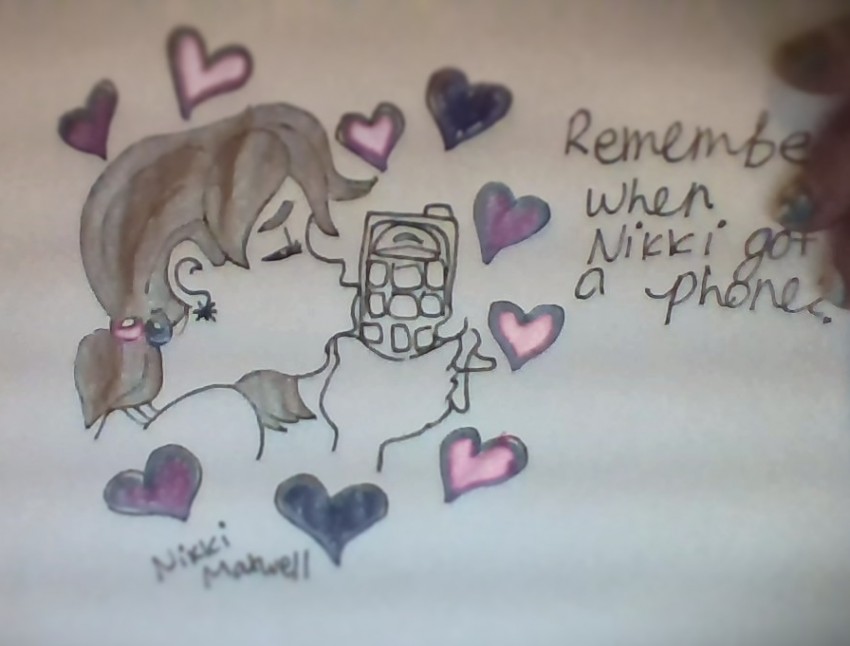 Remembe
when
Nikki got
a phone.
Nikki
Maxwell